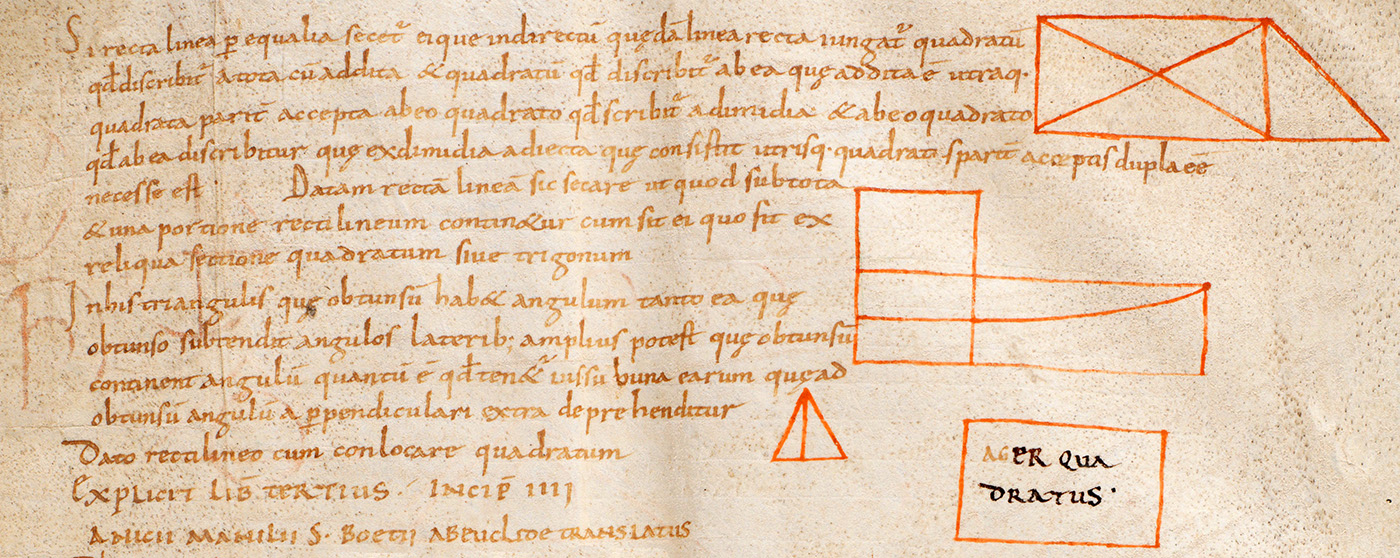 Si recta linea p̄ equalia secet᷑ eique indirectū quędā linea recta iungat᷑ quadratū
qđ discribit᷑ a tota cū addita & quadratū qđ discribit᷑ ab ea quę addita ē utraq·
quadrata parit̄ accepta ab eo quadrato qđ scribit᷑ a dimidia & ab eo quadrato
qđ ab ea discribitur quę ex dimidia adiecta quę consistit utrisq· quadratis parit̄ acceptis dupla ee
necesse est Datam rectā lineā sic secare ut quod sub tota
& una portione rectilineum contin&ur cum sit ei quo fit ex
reliqua sectione quadratum sive trigonum
In his triangulis quę obtunsū hab& angulum tanto ea quę
obtunso subtendit angulos laterib; amplius potest quę obtunsū
continent angulū quantū ē qđ ten&᷑ bis sub una earum quę ad
obtunsū angulū a p̄pendiculari extra deprehenditur
Dato rectilineo cum conlocare quadratum
EXPLICIT LIB̄ TERTIUS· INCIP̄ IIII
ANICII MANILII S· BOETII AB EUCLIDE TRANSLATUS
AGER QUA
DRATUS·